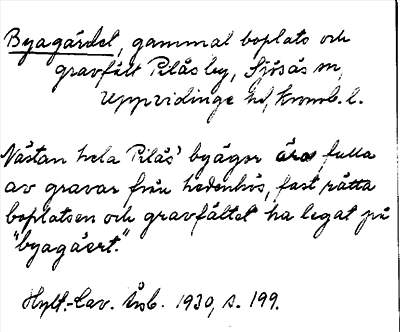 Byagärdet, gammal boplats och
gravfält Pilås by, Sjösås sn,
Uppvidinge hd, Kronob. l.
Nästan hela Pilås' byägor äro fulla
av gravar från hedenhös, fast rätta
boplatsen och gravfältet ha legat på
"byagäert."
Hylt.-Cav. Årsb. 1930, s. 199.